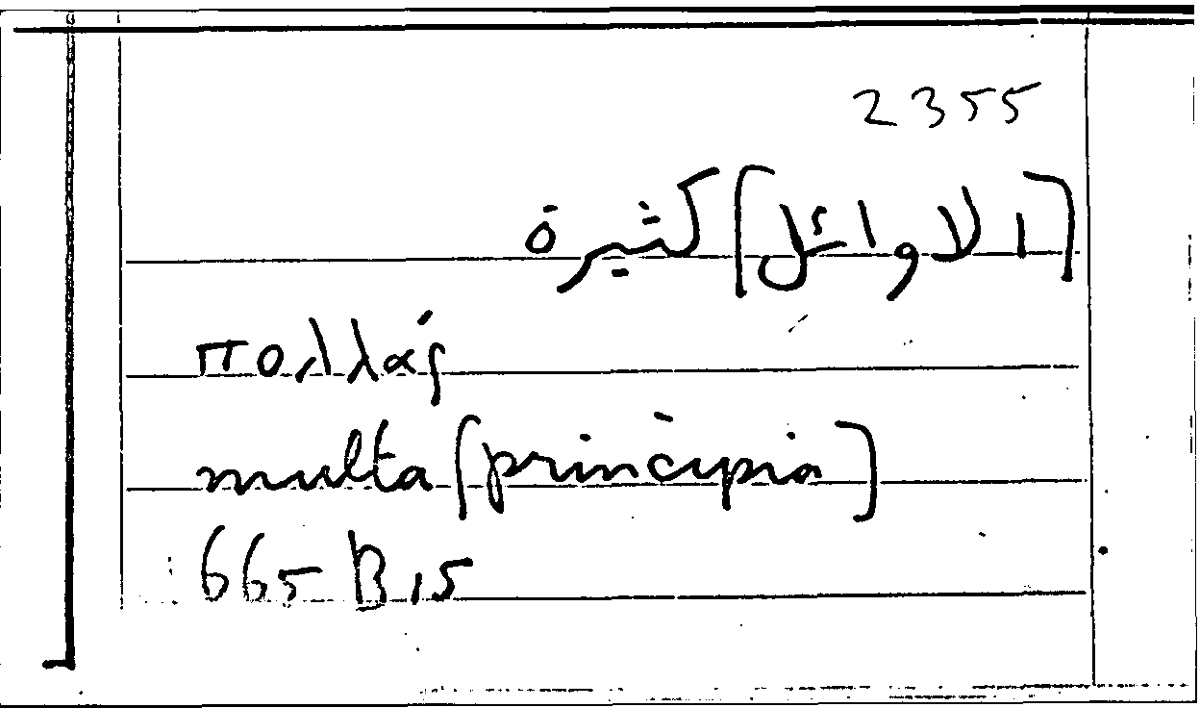 2355
[الاوائل] كثيرة
πολλάς
multa [principia]
665 B 15